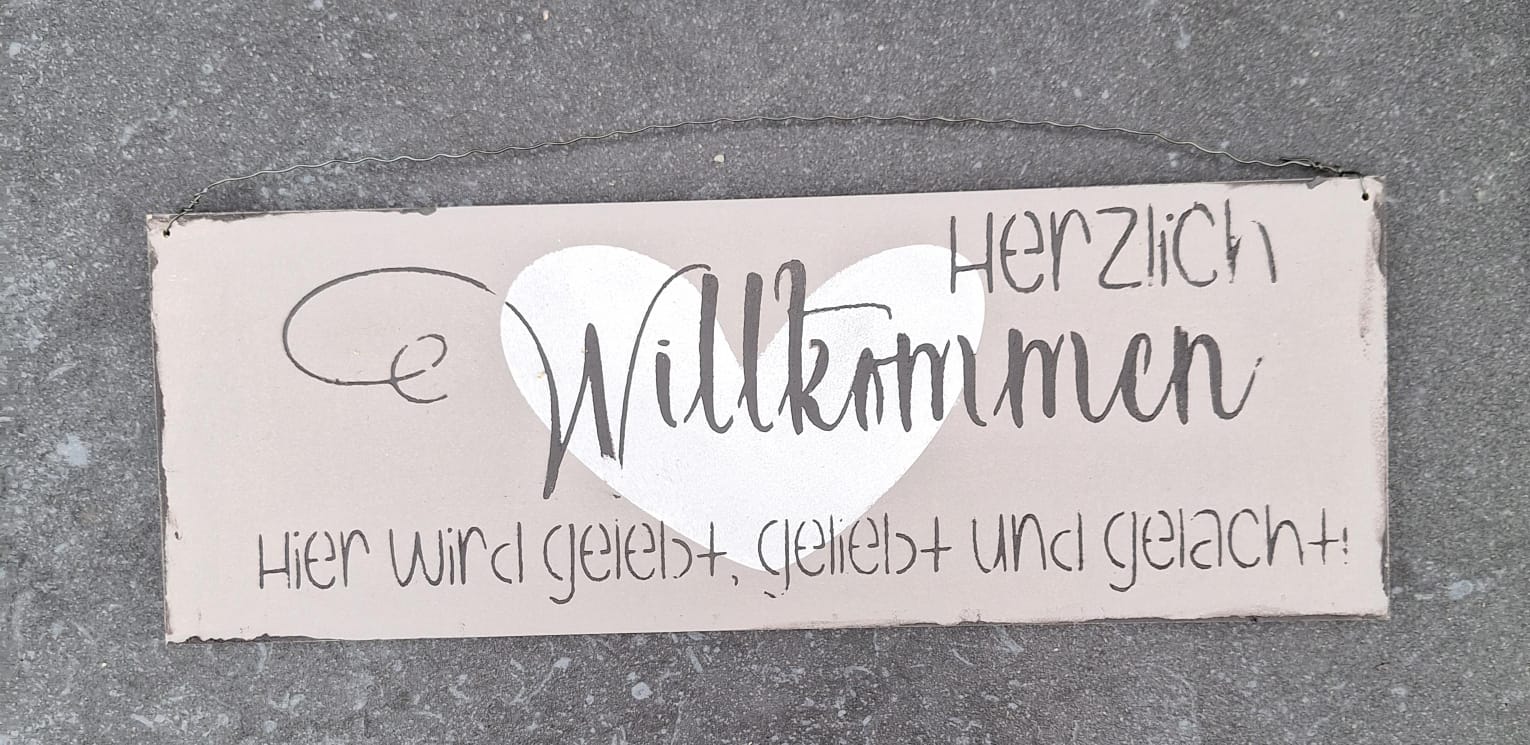 Herzlich
Willkommen
Hier wird gelebt, geliebt und gelacht!